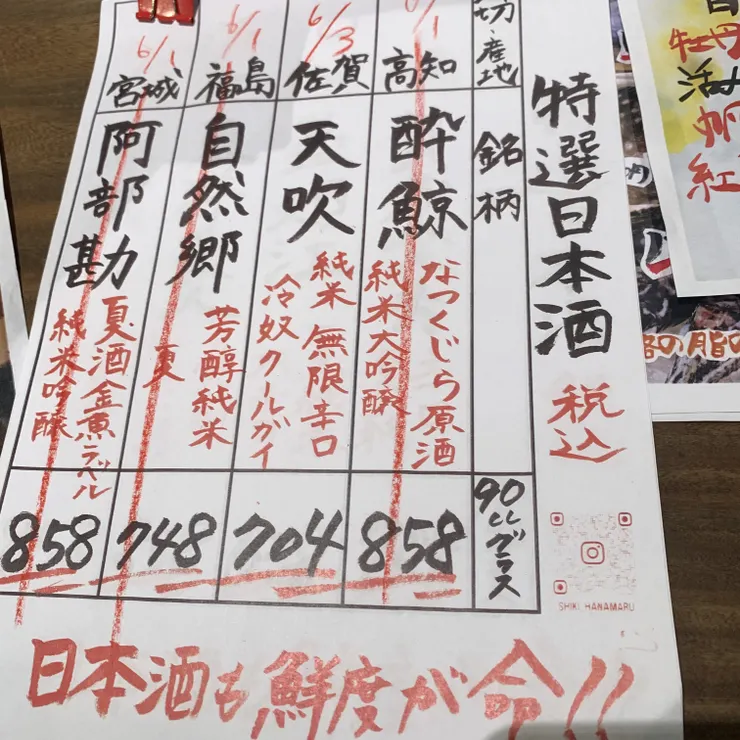 特選日本酒 税込
切・産地 銘柄 90ccグラス
6/1 高知 酔鯨 なつくじら原酒
純米大吟醸 858
6/3 佐賀 天吹 純米 無限辛口
冷奴クールガイ 704
6/1 福島 自然郷 芳醇純米
夏 748
6/1 宮城 阿部勘 夏酒金魚ラベル
純米吟醸 858
日本酒も鮮度が命!!
SHIKI HANAMARU
牡丹
活
紅
の脂の